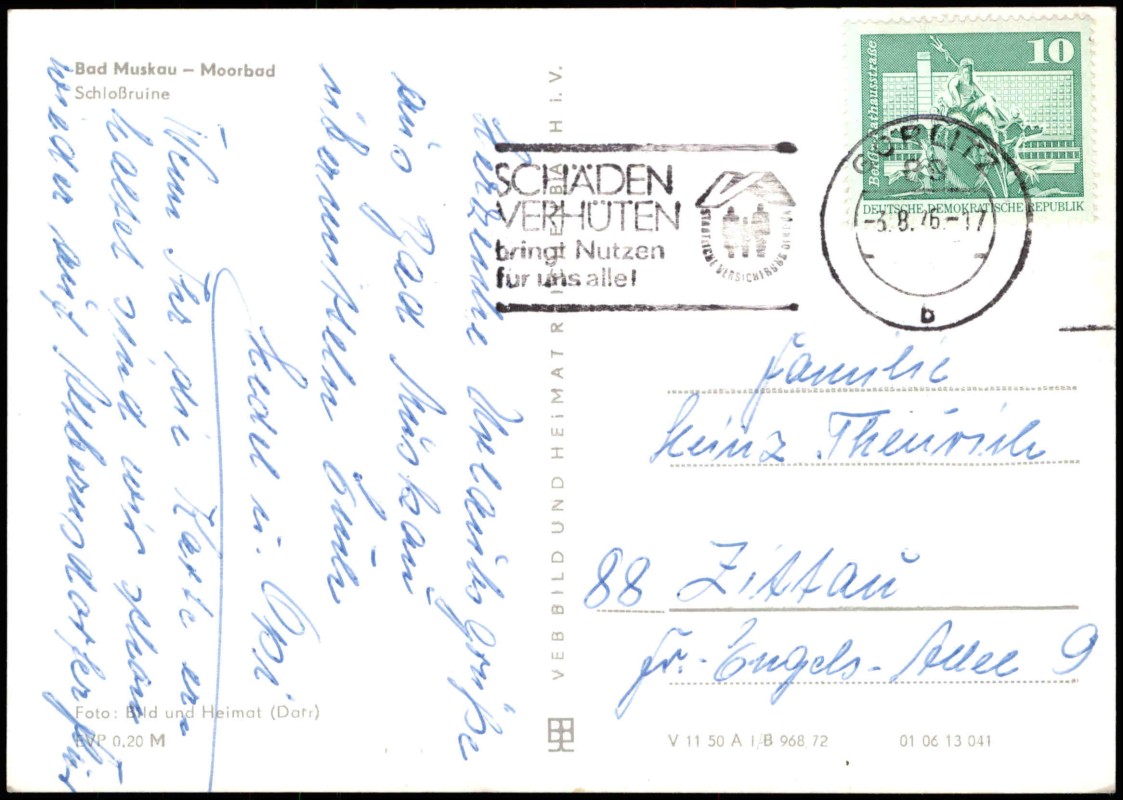 Bad Muskau – Moorbad
Schloßruine
Herzliche Urlaubsgrüße
aus Bad Muskau
übermitteln Euch
u. Opsi
Wenn Ihr die Karte er-
haltet sind wir schon
wieder auf
Foto: Bild und Heimat (Darr)
EVP 0,20 M
VEB BILD UND HEIMAT REICHENBACH i. V.
SCHÄDEN
VERHÜTEN
bringt Nutzen
für uns alle!
STAATLICHE VERSICHERUNG DER DDR
GÖRLITZ
-5.8.76.-17
b
10
Berlin, Rathausstraße
DEUTSCHE DEMOKRATISCHE REPUBLIK
Familie
Heinz Theurich
88 Zittau
Fr.-Engels-Allee 9
V 11 50 A I/B 968 72
01 06 13 041